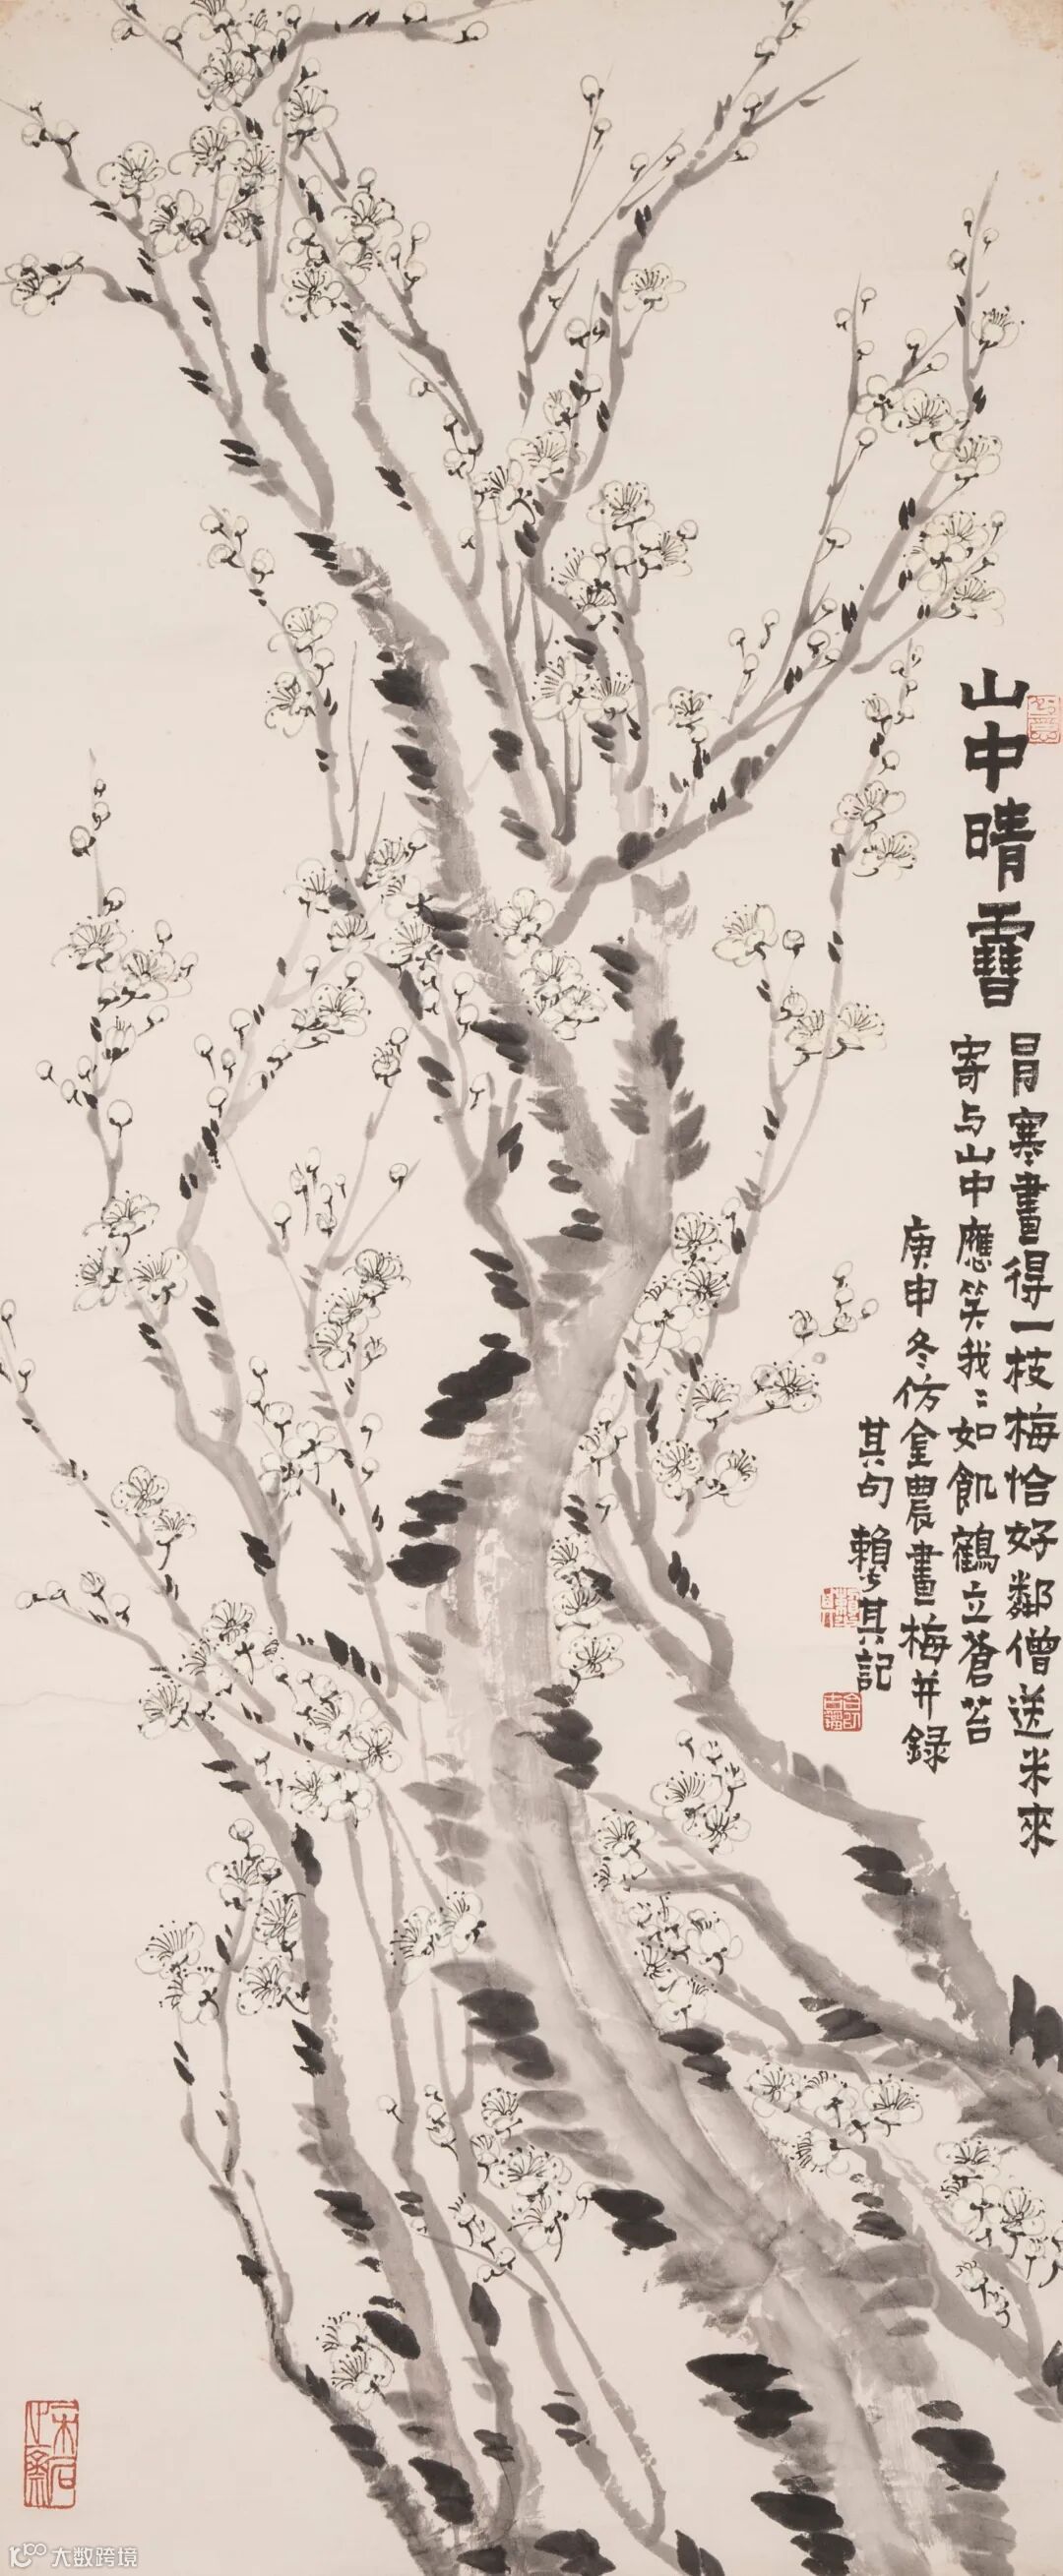 山中晴雪
冒寒畫得一枝梅恰好鄰僧送米來
寄与山中應笑我〻如飢鶴立蒼苔
庚申冬仿金農畫梅并録
其句 賴少其記
大数跨境